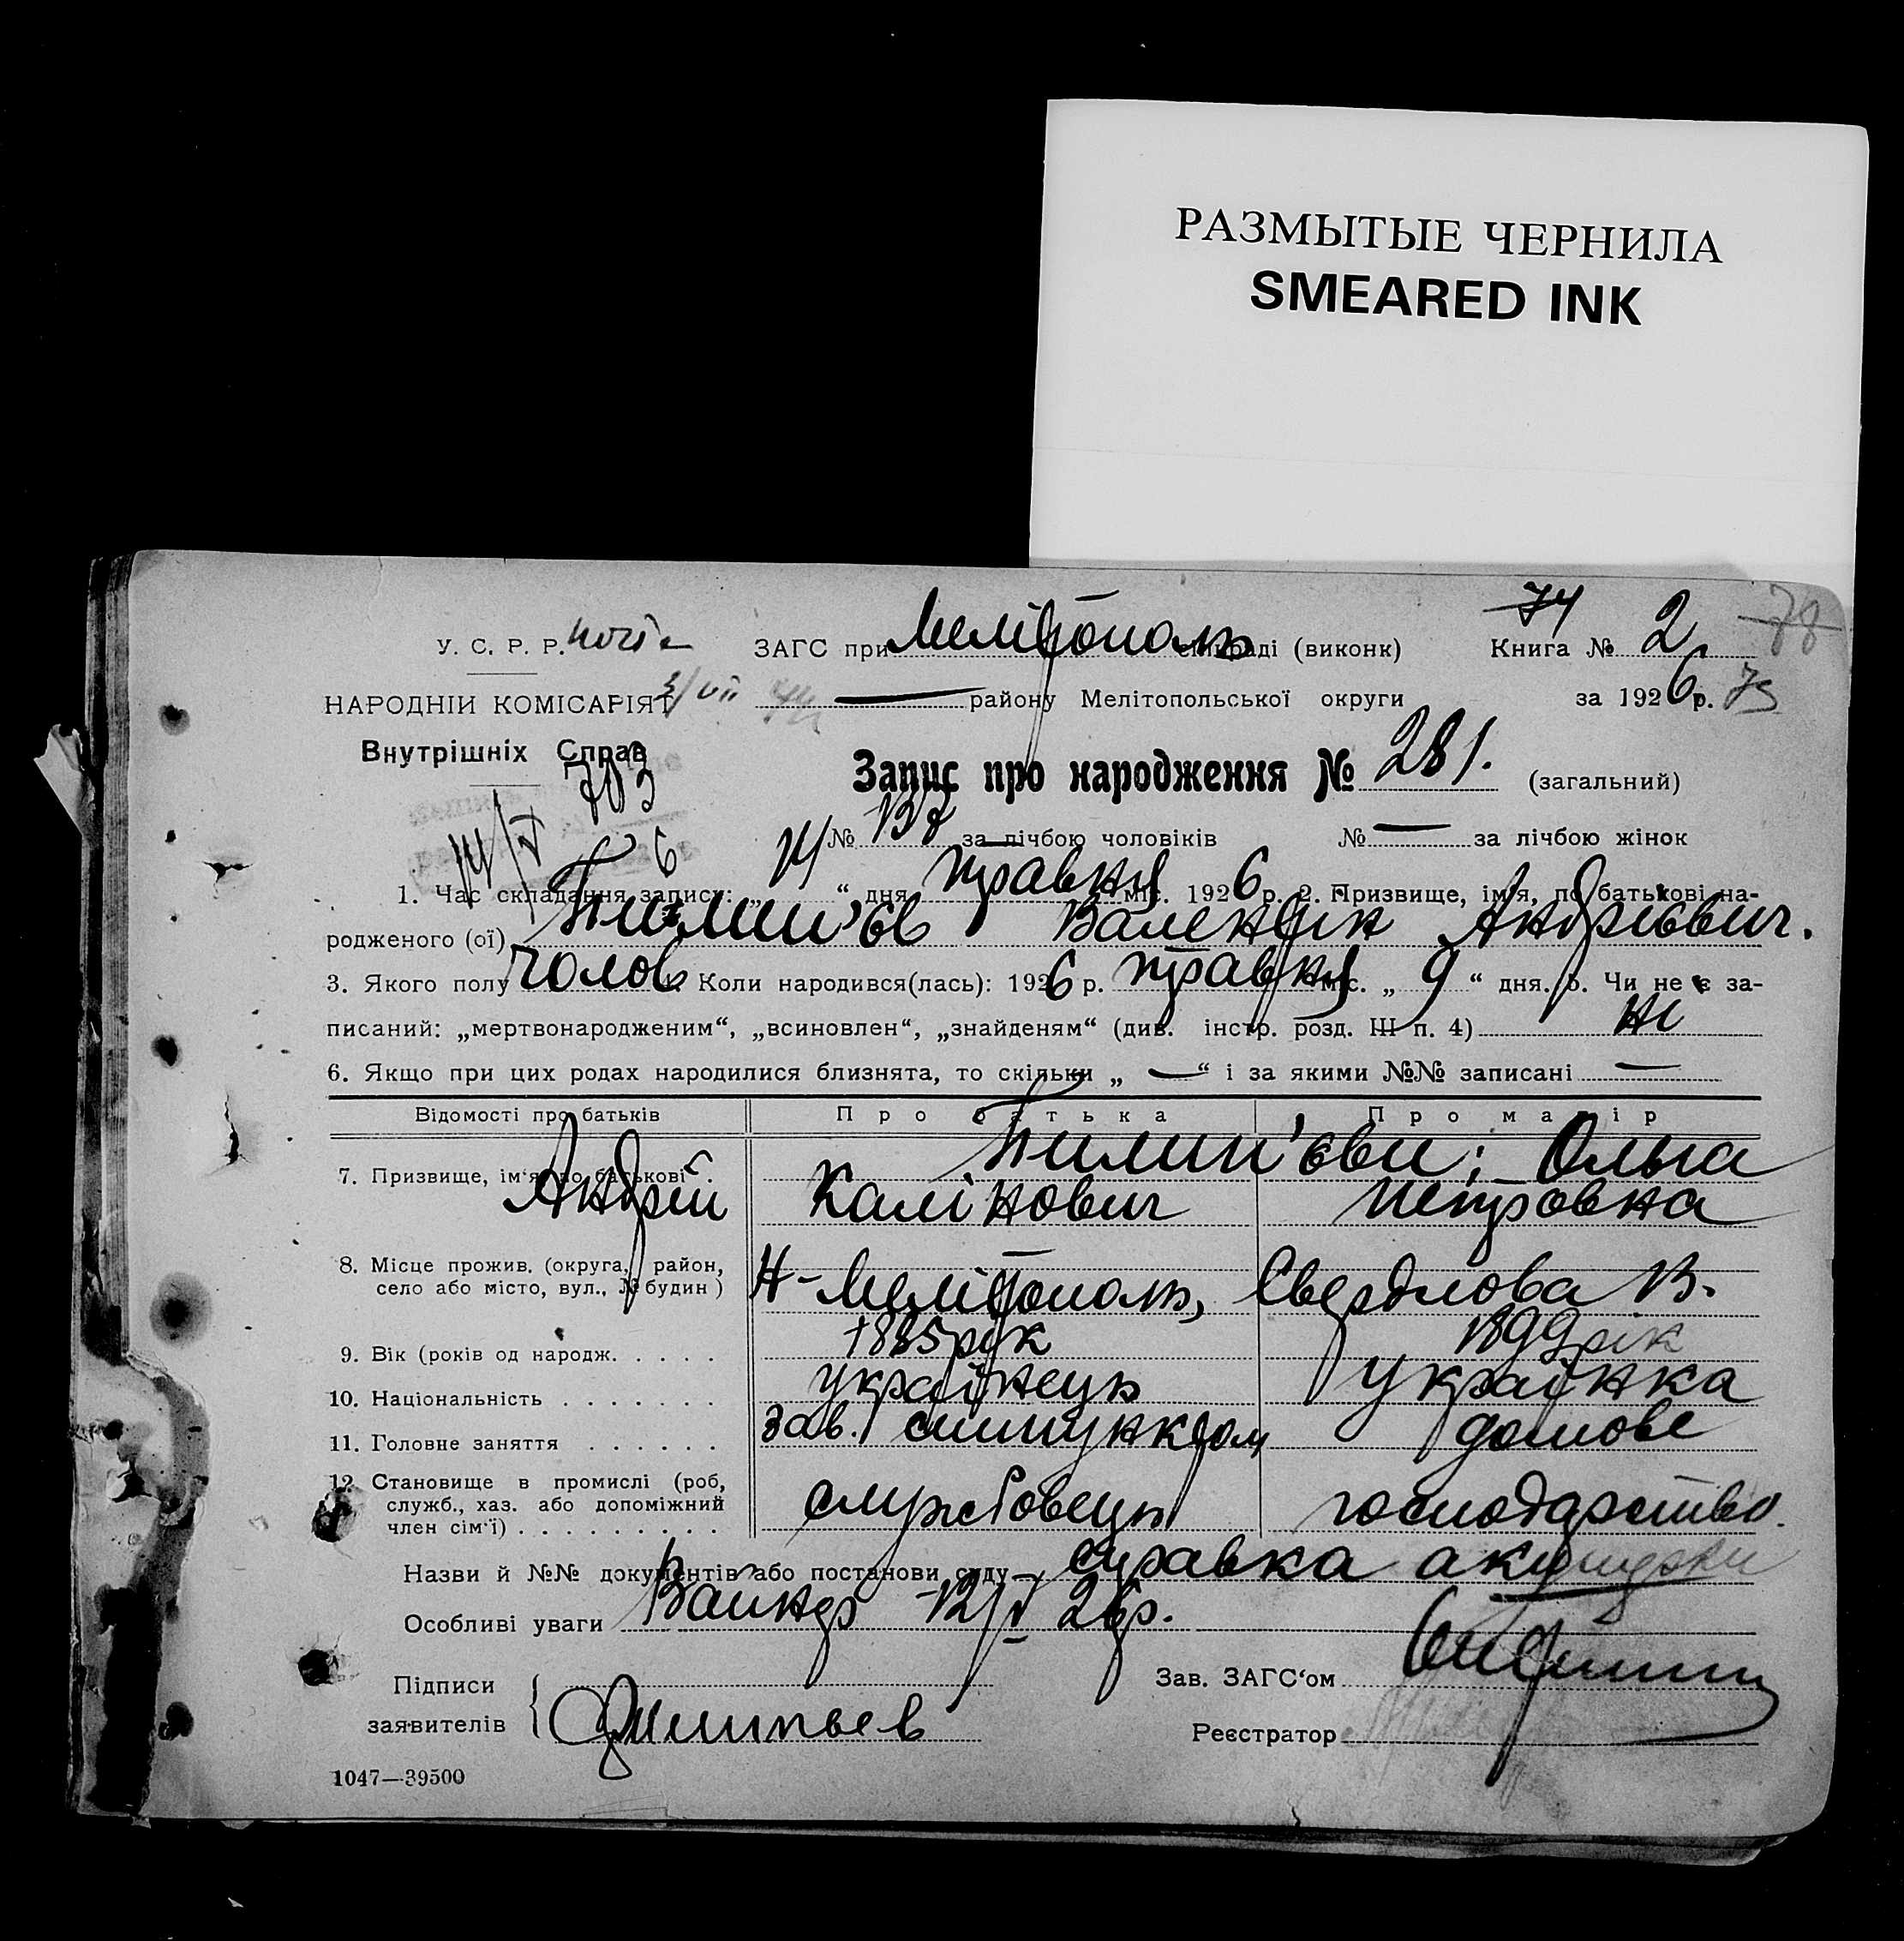 РАЗМЫТЫЕ ЧЕРНИЛА
SMEARED INK
74
У. С. Р. Р. ЗАГС при Мелітополь сільраді (виконк) Книга № 2 78
НАРОДНІЙ КОМІСАРІЯТ — району Мелітопольської округи за 1926 р. 75
Внутрішніх Справ
703
Запис про народження № 281. (загальний)
14/V 6 № 137 за лічбою чоловіків № — за лічбою жінок
1. Час складання запису: „ 14 “ дня травня міс. 1926 р. 2. Призвище, ім'я, по батькові на-
родженого (ої) Пилип'єв Валентін Андрієвич.
3. Якого полу чолов 4. Коли народився(лась): 1926 р. травня міс. „ 9 “ дня. 5. Чи не є за-
писаний: „мертвонародженим“, „всиновлен“, „знайденям“ (див. інстр. розд. III п. 4) ні
6. Якщо при цих родах народилися близнята, то скільки „ — “ і за якими №№ записані —
Відомості про батьків Про батька Про матір
7. Призвище, ім'я, по батькові . Пилип'єви: Ольга
Андрій Калінович Петровна
8. Місце прожив. (округа, район,
село або місто, вул., № будин) Н-Мелітополь, Свердлова 13.
9. Вік (років од народж. . . . . 1885 рік 1899 рік
10. Національність . . . . . . . українець українка
11. Головне заняття . . . . . . зав. сиппунктом домове
12. Становище в промислі (роб,
служб., хаз. або допоміжний службовець господарство.
член сім'ї) . . . . . . . . .
Назви й №№ документів або постанови суду справка акушерки
Особливі уваги 12/V 26р.
Підписи Зав. ЗАГС'ом
заявителів Филипьев Реєстратор
1047—39500